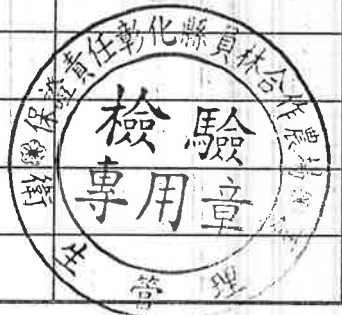 保證責任彰化縣員林合作農場
檢驗
專用章
衛生管理